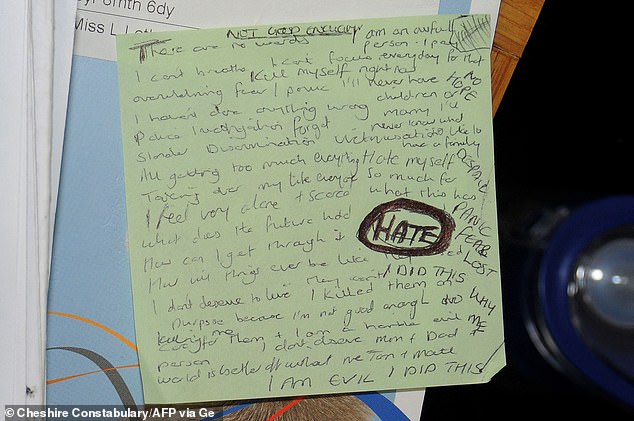 6dy
Miss L
NOT GOOD ENOUGH
There are no words
am an awful
person - I pay
I can't breathe I can't focus everyday for that
Kill myself right now NO
overwhelming fear / panic I'll never have HOPE
I haven't done anything wrong children or
marry I'll
Police investigation forget never know what
Slander Discrimination Victimisation like to
have a family
All getting too much everything I Hate myself DESPAIR
Taking over my life everyone so much for
I feel very alone + scared what this has
What does the future hold PANIC
HATE
How can I get through it FEAR
How will things ever be like LOST
I DID THIS
I don't deserve to live. I killed them on
WHY
purpose because I'm not good enough
ME
care for them + I am a horrible evil
person I don't deserve mum + Dad +
world is better off without me
I AM EVIL I DID THIS
© Cheshire Constabulary/AFP via Ge